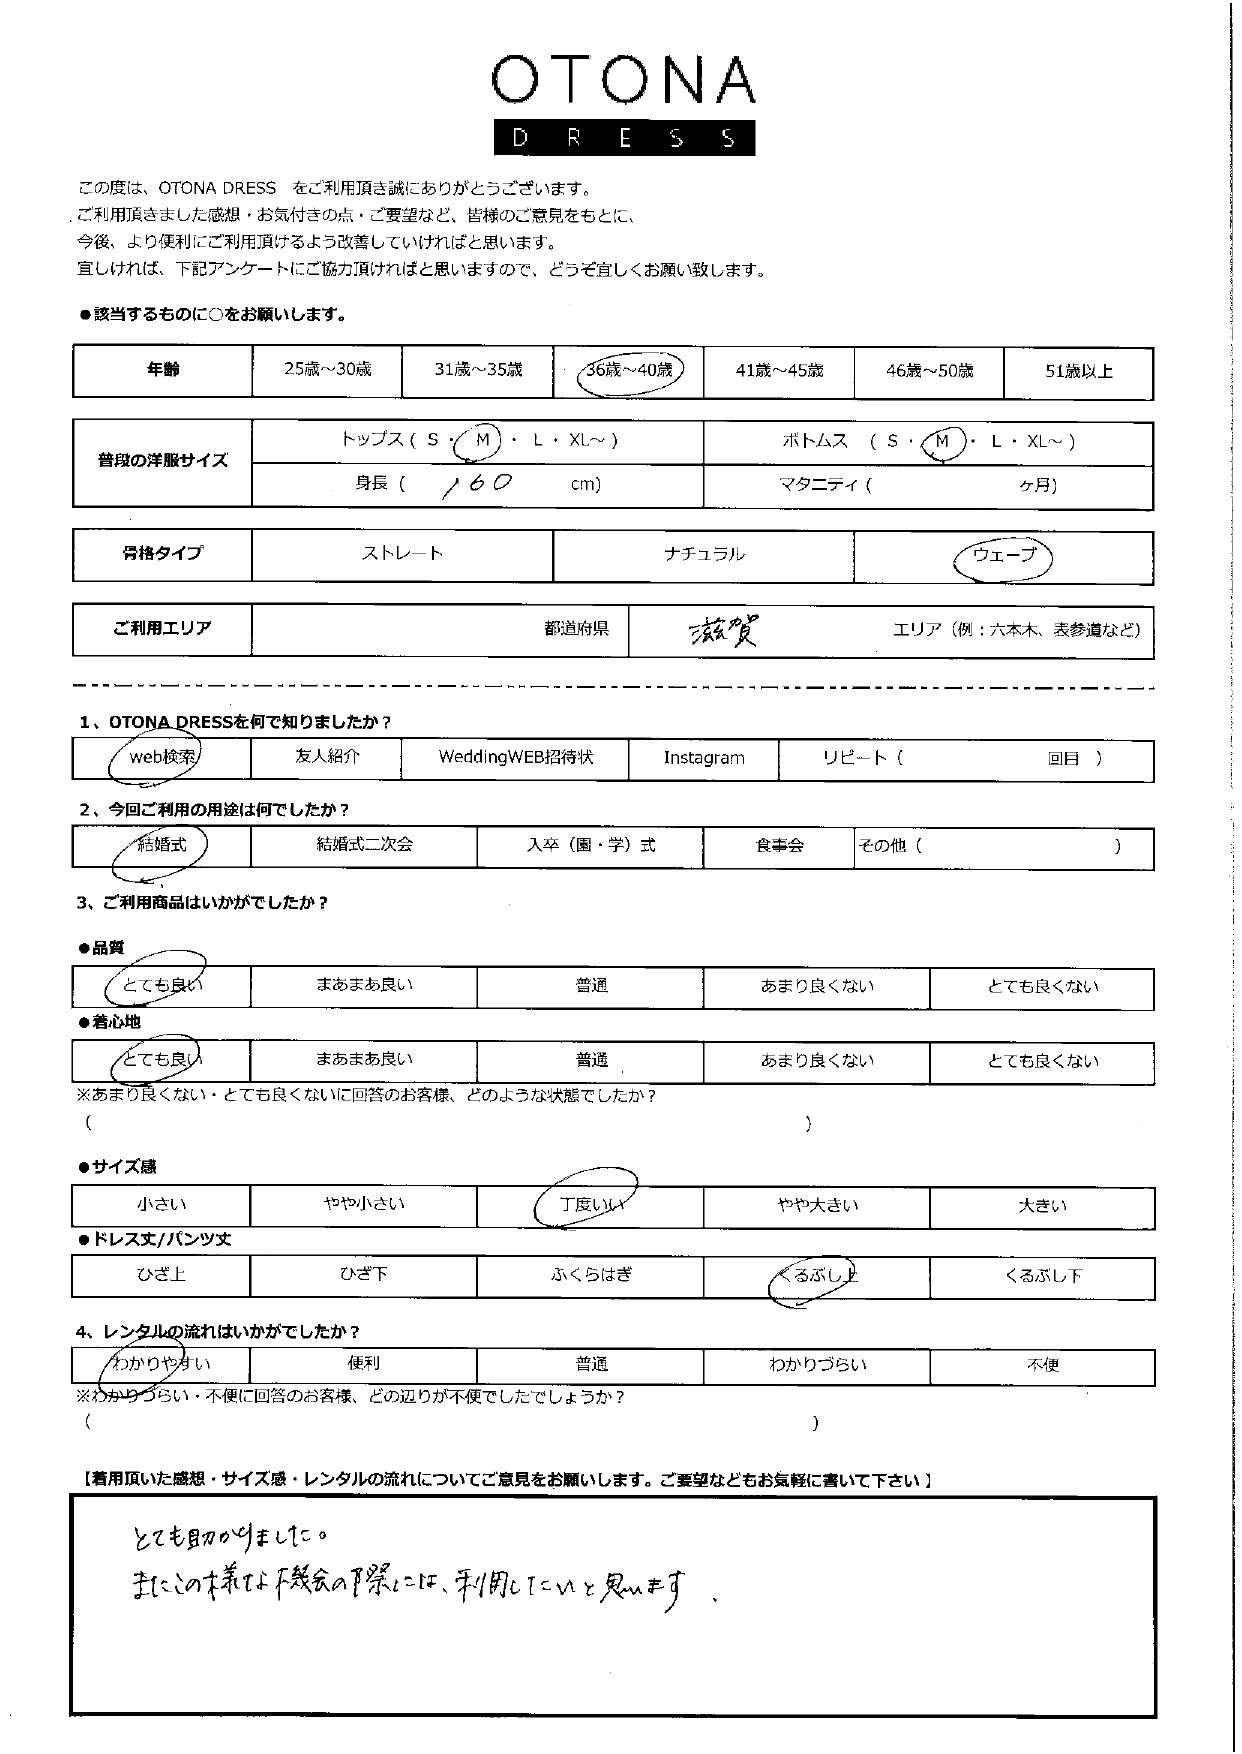 OTONA
DRESS
この度は、OTONA DRESS　をご利用頂き誠にありがとうございます。
ご利用頂きました感想・お気付きの点・ご要望など、皆様のご意見をもとに、
今後、より便利にご利用頂けるよう改善していければと思います。
宜しければ、下記アンケートにご協力頂ければと思いますので、どうぞ宜しくお願い致します。
●該当するものに○をお願いします。
年齢 25歳～30歳 31歳～35歳 36歳～40歳 41歳～45歳 46歳～50歳 51歳以上
普段の洋服サイズ
トップス ( S ・ M ・ L ・ XL～ ) ボトムス ( S ・ M ・ L ・ XL～ )
身長 ( 160 cm) マタニティ ( ヶ月)
骨格タイプ ストレート ナチュラル ウェーブ
ご利用エリア 都道府県 滋賀 エリア（例：六本木、表参道など）
1、OTONA DRESSを何で知りましたか？
web検索 友人紹介 WeddingWEB招待状 Instagram リピート（ 回目 ）
2、今回ご利用の用途は何でしたか？
結婚式 結婚式二次会 入卒（園・学）式 食事会 その他（ ）
3、ご利用商品はいかがでしたか？
●品質
とても良い まあまあ良い 普通 あまり良くない とても良くない
●着心地
とても良い まあまあ良い 普通 あまり良くない とても良くない
※あまり良くない・とても良くないに回答のお客様、どのような状態でしたか？
（ ）
●サイズ感
小さい やや小さい 丁度いい やや大きい 大きい
●ドレス丈/パンツ丈
ひざ上 ひざ下 ふくらはぎ くるぶし上 くるぶし下
4、レンタルの流れはいかがでしたか？
わかりやすい 便利 普通 わかりづらい 不便
※わかりづらい・不便に回答のお客様、どの辺りが不便でしたでしょうか？
（ ）
【着用頂いた感想・サイズ感・レンタルの流れについてご意見をお願いします。ご要望などもお気軽に書いて下さい 】
とても助かりました。
またこの様な機会の際には、利用したいと思います.